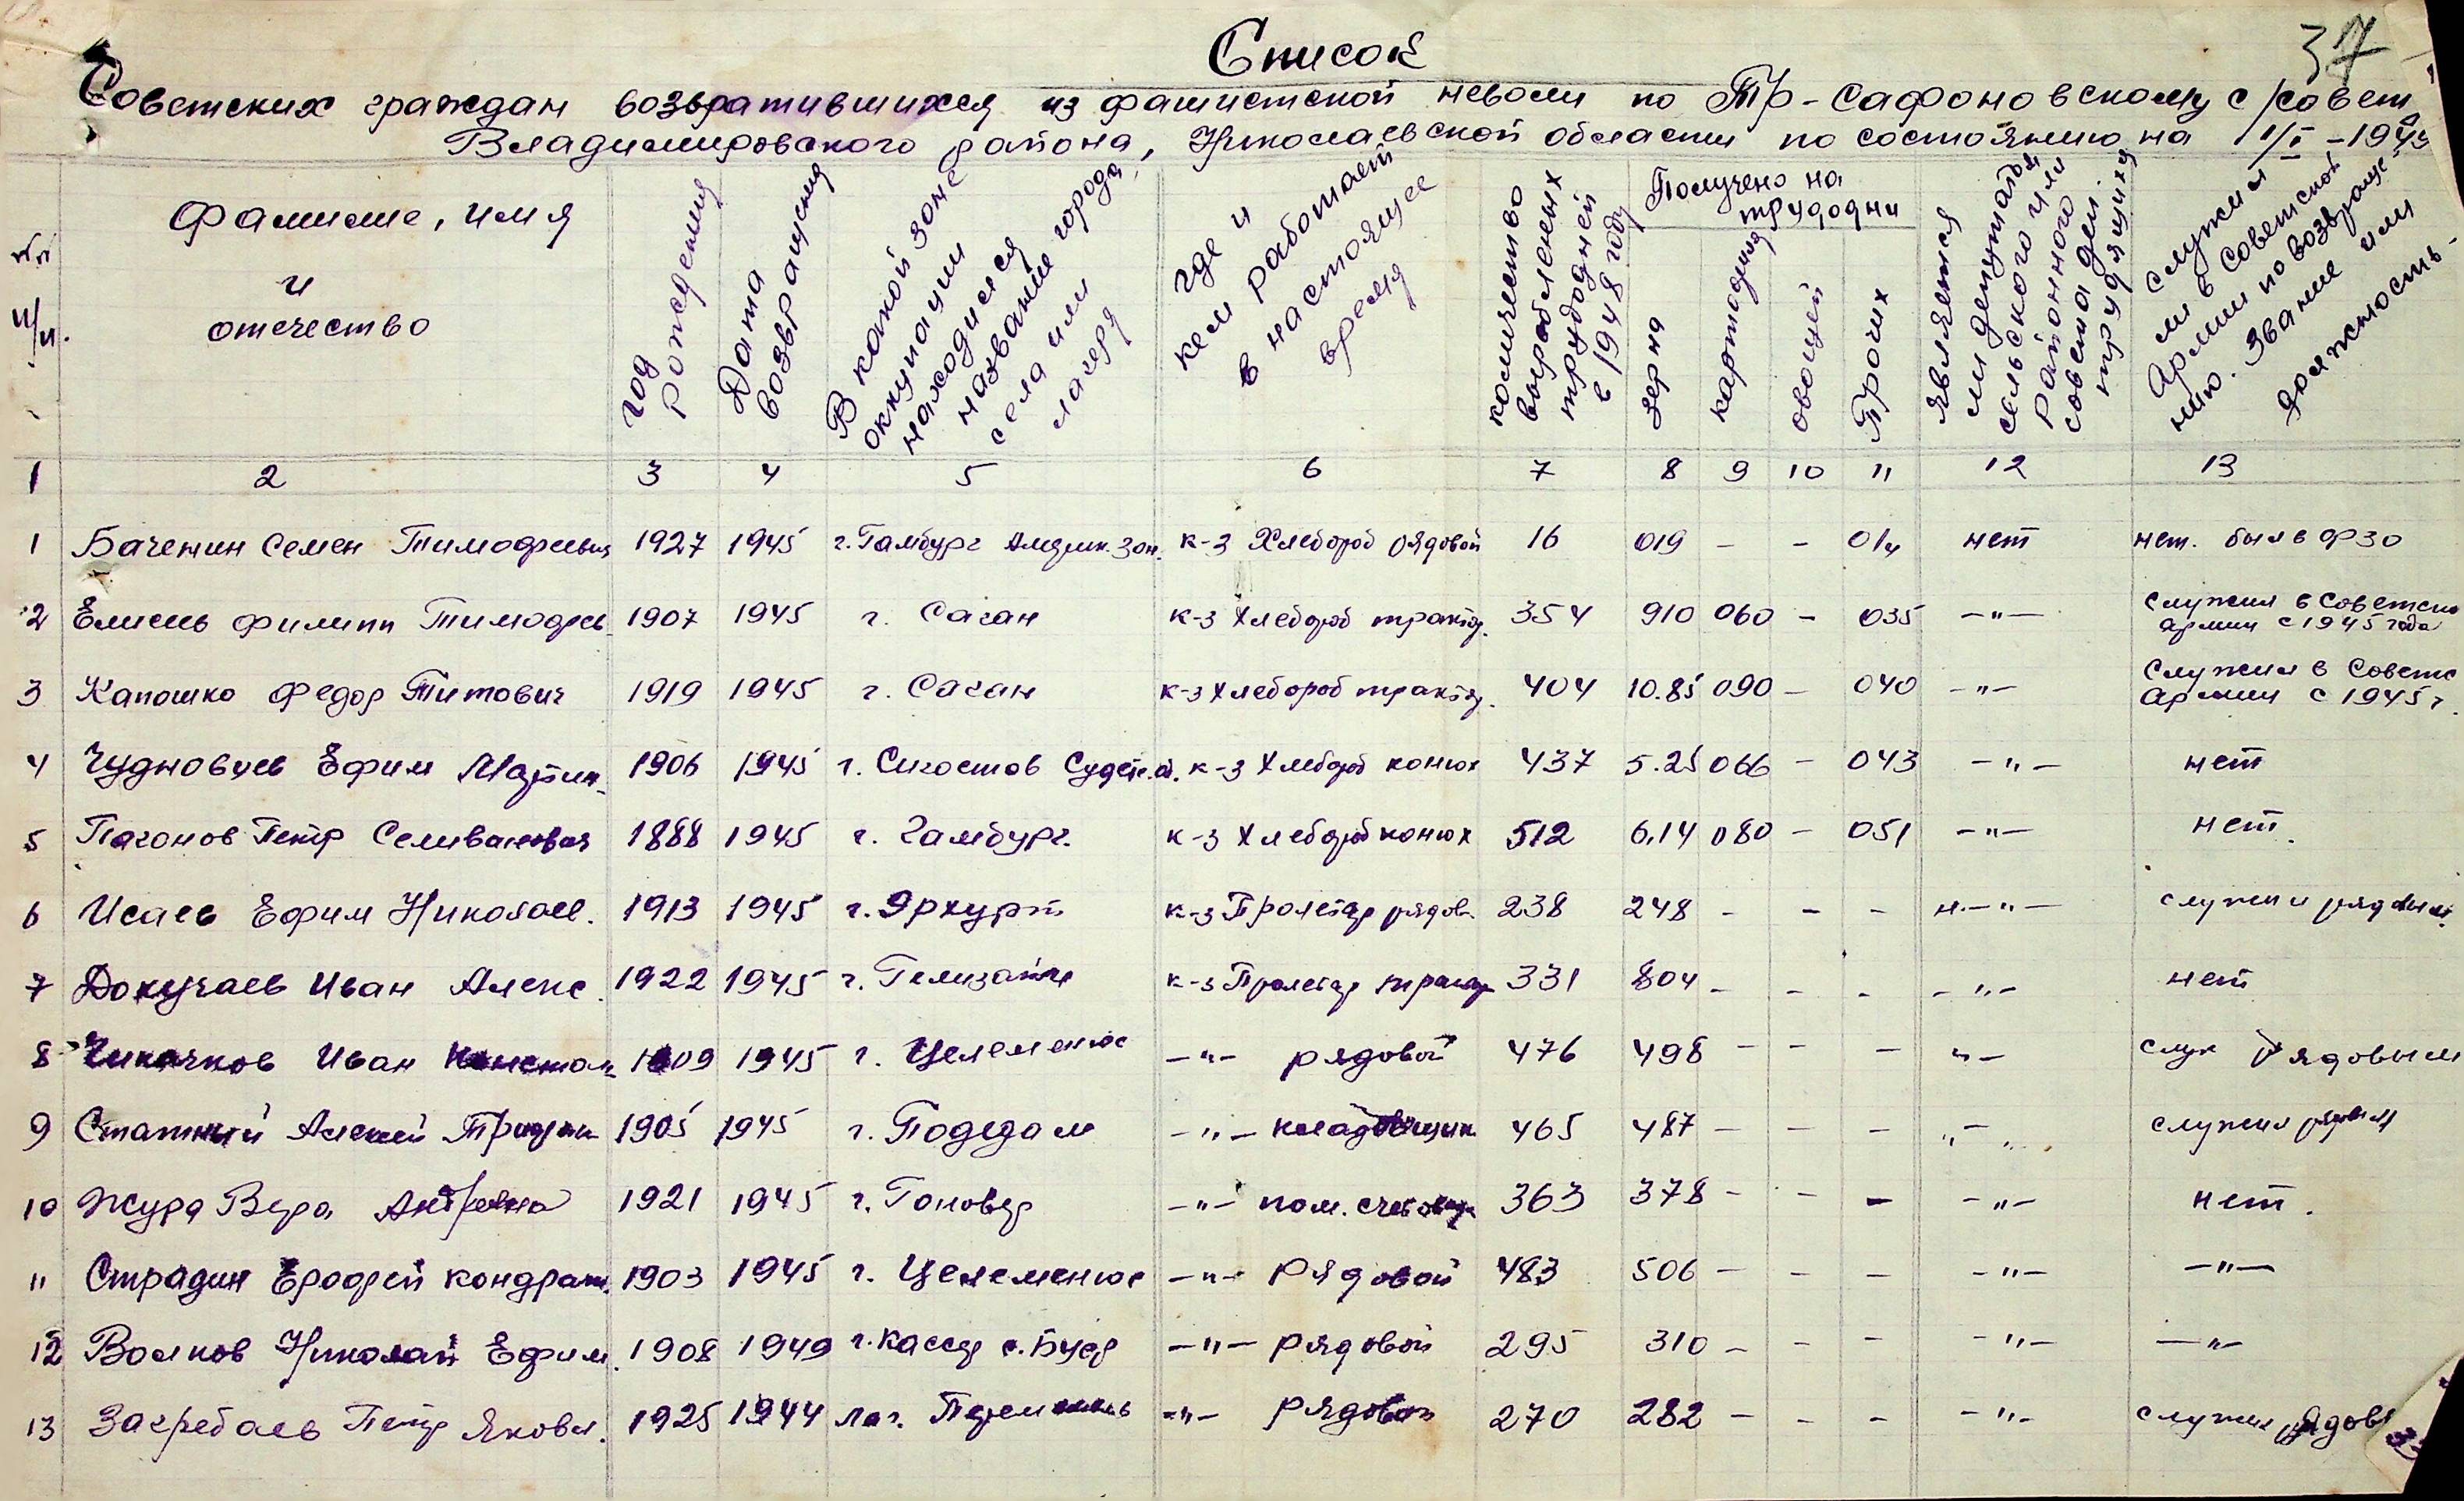 37
Список
Советских граждан возвратившихся из фашистской неволи по Тр-Сафоновскому с/совет
Владимировского района, Николаевской области по состоянию на 1/I-194
№№ п/п.
Фамилие, имя и отчество
год рождения
Дата возвращения
В какой зоне окупации находился название города, села или лагеря
где и кем работает в настоящее время
количество выработленных трудодней в 1948 году
Получено на трудодни
зерна
картофля
овощей
Прочих
является ли депутатом сельского или районного совета деп. трудящихся
служил ли в Советской Армии по возвращению. Звание или должность.
1 2 3 4 5 6 7 8 9 10 11 12 13
1 Баченин Семен Тимофеевич 1927 1945 г. Гамбург Америк. зон. к-з Хлебороб рядовой 16 019 - - нет нет. был в ФЗО
2 Елисеь Филипп Тимофеев. 1907 1945 г. Саган к-з Хлебороб тракто. 354 910 060 - 035 -"- служил в Советско армии с 1945 года
3 Капошко Федор Титович 1919 1945 г. Саган к-з Хлебороб тракто. 404 10.85 090 - 040 -"- Служил в Советс Армии с 1945 г.
4 Чудновцев Ефим Мартин. 1906 1945 г. к-з Хлебороб конюх 437 5.25 066 - 043 -"- нет
5 Пагонов Петр Селиванович 1888 1945 г. Гамбург. к-з Хлебороб конюх 512 6.14 080 - 051 -"- нет.
6 Исаев Ефим Николаев. 1913 1945 г. Эрхурт к-з Пролетар рядов. 238 248 - - - н.-"- служил рядовым.
7 Докучаев Иван Алекс. 1922 1945 г. к-з Пролетар трактор 331 804 - - - -"- нет
8 Иван Констан. 1909 1945 г. Целеменюс -"- рядовой 476 498 - - - "- служ рядовым
9 Статный Алексей 1905 1945 г. Подедам -"- кладовщик 465 487 - - - "- служил рядовым
10 Жура Вера Андреевна 1921 1945 г. Гоновер -"- пом. счетовода 363 378 - - - -"- нет.
11 Страдин Ерофей Кондрат. 1903 1945 г. Целеменюс -"- Рядовой 483 506 - - - -"- -"-
12 Волков Николай Ефим. 1908 1949 г. Кассер -"- рядовой 295 310 - - - -"- -"-
13 Загребаев Петр Яковл. 1925 1944 лаг. -"- рядовой 270 282 - - - -"- служил рядовы